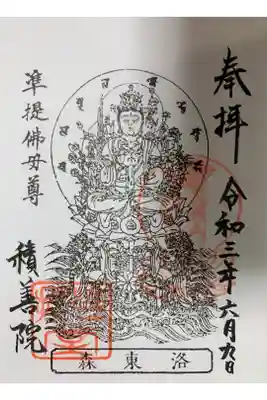 奉拝
令和三年六月九日
凖提佛母尊
積善院
洛東森